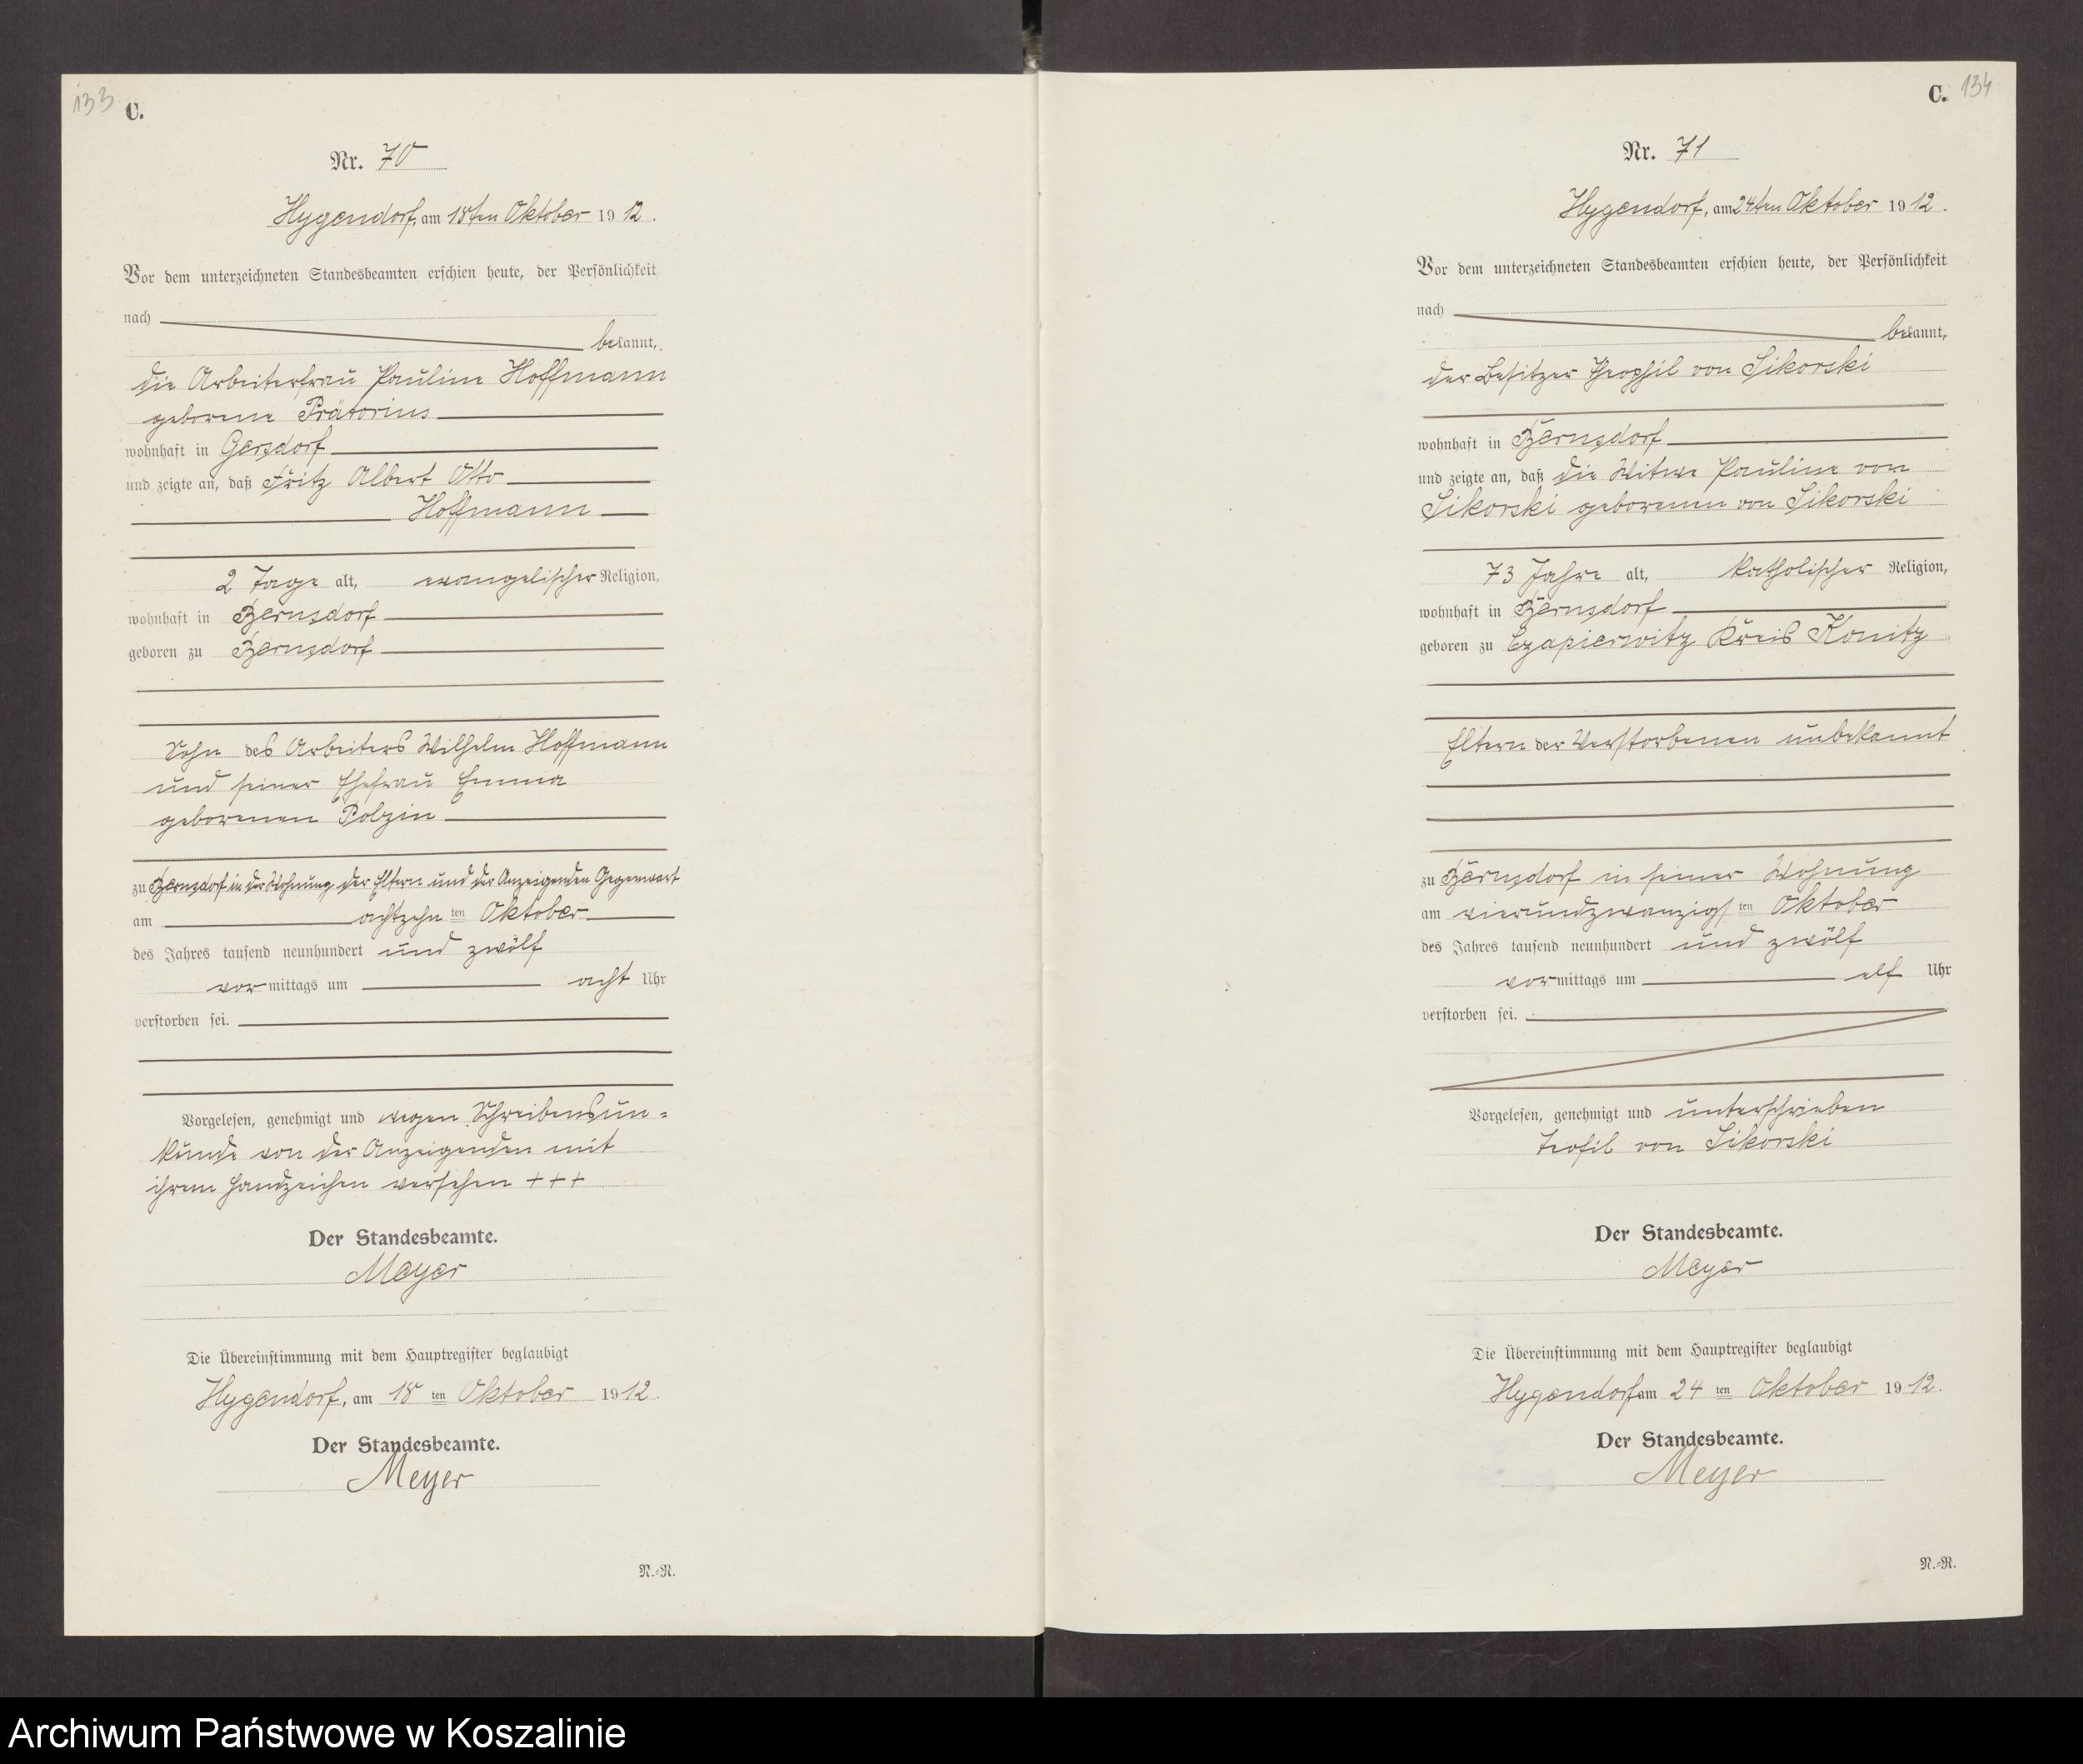 133
C.
Nr. 70
Hygendorf, am 18ten Oktober 1912.
Vor dem unterzeichneten Standesbeamten erschien heute, der Persönlichkeit
nach
bekannt,
die Arbeiterfrau Pauline Hoffmann
geborene Prätorius
wohnhaft in Gersdorf
und zeigte an, daß Fritz Albert Otto
Hoffmann
2 Tage alt, evangelischer Religion,
wohnhaft in Bernsdorf
geboren zu Bernsdorf
Sohn des Arbeiters Wilhelm Hoffmann
und seiner Ehefrau Emma
geborenen Polzin
zu Bernsdorf in der Wohnung der Eltern und der Anzeigenden Gegenwart
am achtzehnten Oktober
des Jahres tausend neunhundert und zwölf
vormittags um acht Uhr
verstorben sei.
Vorgelesen, genehmigt und wegen Schreibensun-
kunde von der Anzeigenden mit
ihrem Handzeichen versehen +++
Der Standesbeamte.
Meyer
Die Übereinstimmung mit dem Hauptregister beglaubigt
Hygendorf, am 18ten Oktober 1912.
Der Standesbeamte.
Meyer
N.-R.
C. 134
Nr. 71
Hygendorf, am 24ten Oktober 1912.
Vor dem unterzeichneten Standesbeamten erschien heute, der Persönlichkeit
nach
bekannt,
der Besitzer Theophil von Sikorski
wohnhaft in Bernsdorf
und zeigte an, daß die Witwe Pauline von
Sikorski geborenen von Sikorski
73 Jahre alt, katholischer Religion,
wohnhaft in Bernsdorf
geboren zu Czapiewitz Kreis Konitz
Eltern der Verstorbenen unbekannt
zu Bernsdorf in seiner Wohnung
am vierundzwanzigsten Oktober
des Jahres tausend neunhundert und zwölf
vormittags um elf Uhr
verstorben sei.
Vorgelesen, genehmigt und unterschrieben
Teofil von Sikorski
Der Standesbeamte.
Meyer
Die Übereinstimmung mit dem Hauptregister beglaubigt
Hygendorf am 24ten Oktober 1912.
Der Standesbeamte.
Meyer
N.-R.
Archiwum Państwowe w Koszalinie